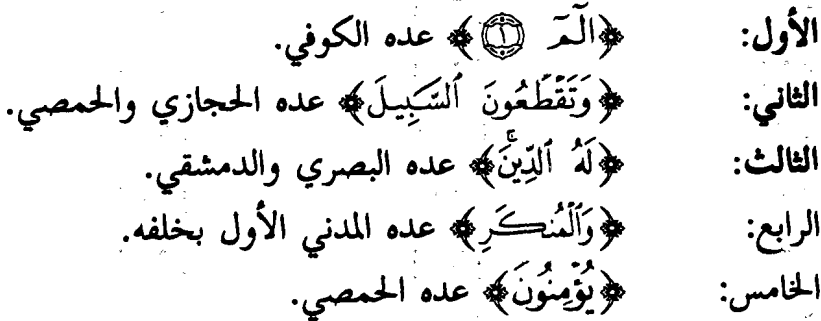 الأول: ﴿الٓمٓ ۝١﴾ عده الكوفي.
الثاني: ﴿وَتَقۡطَعُونَ ٱلسَّبِيلَ﴾ عده الحجازي والحمصي.
الثالث: ﴿لَهُ ٱلدِّينَۚ﴾ عده البصري والدمشقي.
الرابع: ﴿وَٱلۡمُنكَرِ﴾ عده المدني الأول بخلفه.
الخامس: ﴿يُؤۡمِنُونَ﴾ عده الحمصي.